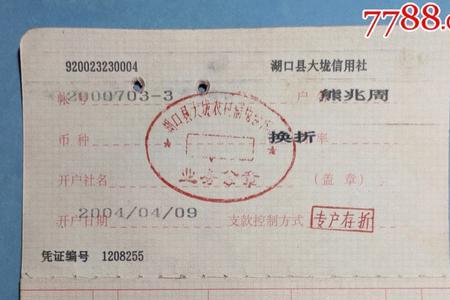 7788.c
920023230004 湖口县大垅信用社
帐号 2000703-3 户 熊兆周
币种 换折 率
开户社名 (盖章)
开户日期 2004/04/09 支款控制方式 专户存折
凭证编号 1208255
湖口县大垅农村信用合作社